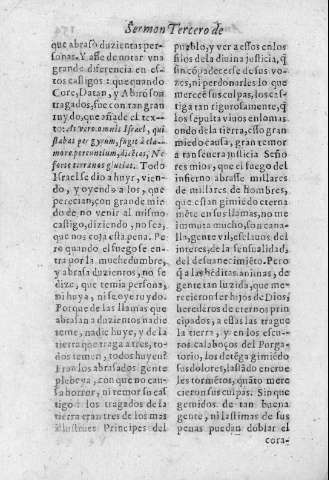 Sermon Tercero de
que abrasò duzientas per-
sonas. Y asse de notar vna
grande diferencia en es-
tos castigos: que quando
Core, Datan, y Abiron son
tragados, fue con tan gran
ruydo, que añade el tex-
to: At vero omnis Israel, qui
stabat per gyrum, fugit à cla-
more pereuntium, dicens, Ne
forte terra nos glutiat. Todo
Israel se dio a huyr, vien-
do, y oyendo a los, que
perecian, con grande mie-
do de no venir al mismo
castigo, diziendo, no sea,
que nos coja esta pena. Pe
ro quando el fuego se en-
tra por la muchedumbre,
y abrasa duzientos, no se
dize, que temia persona,
ni huya, ni se oye ruydo.
Porque de las llamas que
abrasan a duzientos nadie
teme, nadie huye, y de la
tierra que traga a tres, to-
dos temen, todos huyen?
Eran los abrasados gente
plebeya, con que no cau-
sa horror, ni temor su cas
tigo: los tragados de la
tierra eran tres de los mas
illustres Principes del
pueblo, y ver a essos en los
filos de la diuina justicia, q̃
sin cõpadecerse de sus vo-
zes, ni perdonarles lo que
merecē sus culpas, los cas-
tiga tan rigurosamente, q̃
los sepulta viuos en lo mas
ondo de la tierra, esso gran
miedo causa, gran temor
a tan seuera justicia. Seño
res mios, que el fuego del
infierno abrasse millares
de millares de hombres,
que estan gimiēdo eterna
mēte en sus llamas, no me
inmuta mucho, son cana-
lla, gente vil, esclauos del
interes, de la sensualidad,
del desuanecimiēto. Pero
q̃ a las bēditas animas, de
gente tan luzida, que me-
recieron ser hijos de Dios,
herederos de eternos prin
cipados, a essas las trague
la tierra, y en los escu-
ros calaboços del Purga-
torio, los detēga gimiēdo
sus dolores, lastãdo en cruе
les tormētos, quãto mere
cieron sus culpas. Sin que
gemidos de tan buena
gente, ni lastimas de sus
penas puedan doblar el
cora-